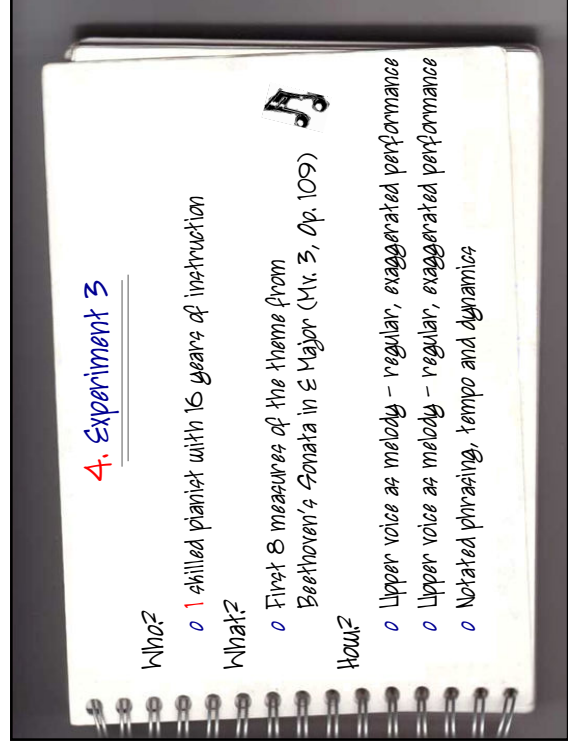 4. Experiment 3
Who?
o 1 skilled pianist with 16 years of instruction
What?
o First 8 measures of the theme from
Beethoven's Sonata in E Major (Mv. 3, Op. 109)
How?
o Upper voice as melody - regular, exaggerated performance
o Upper voice as melody - regular, exaggerated performance
o Notated phrasing, tempo and dynamics